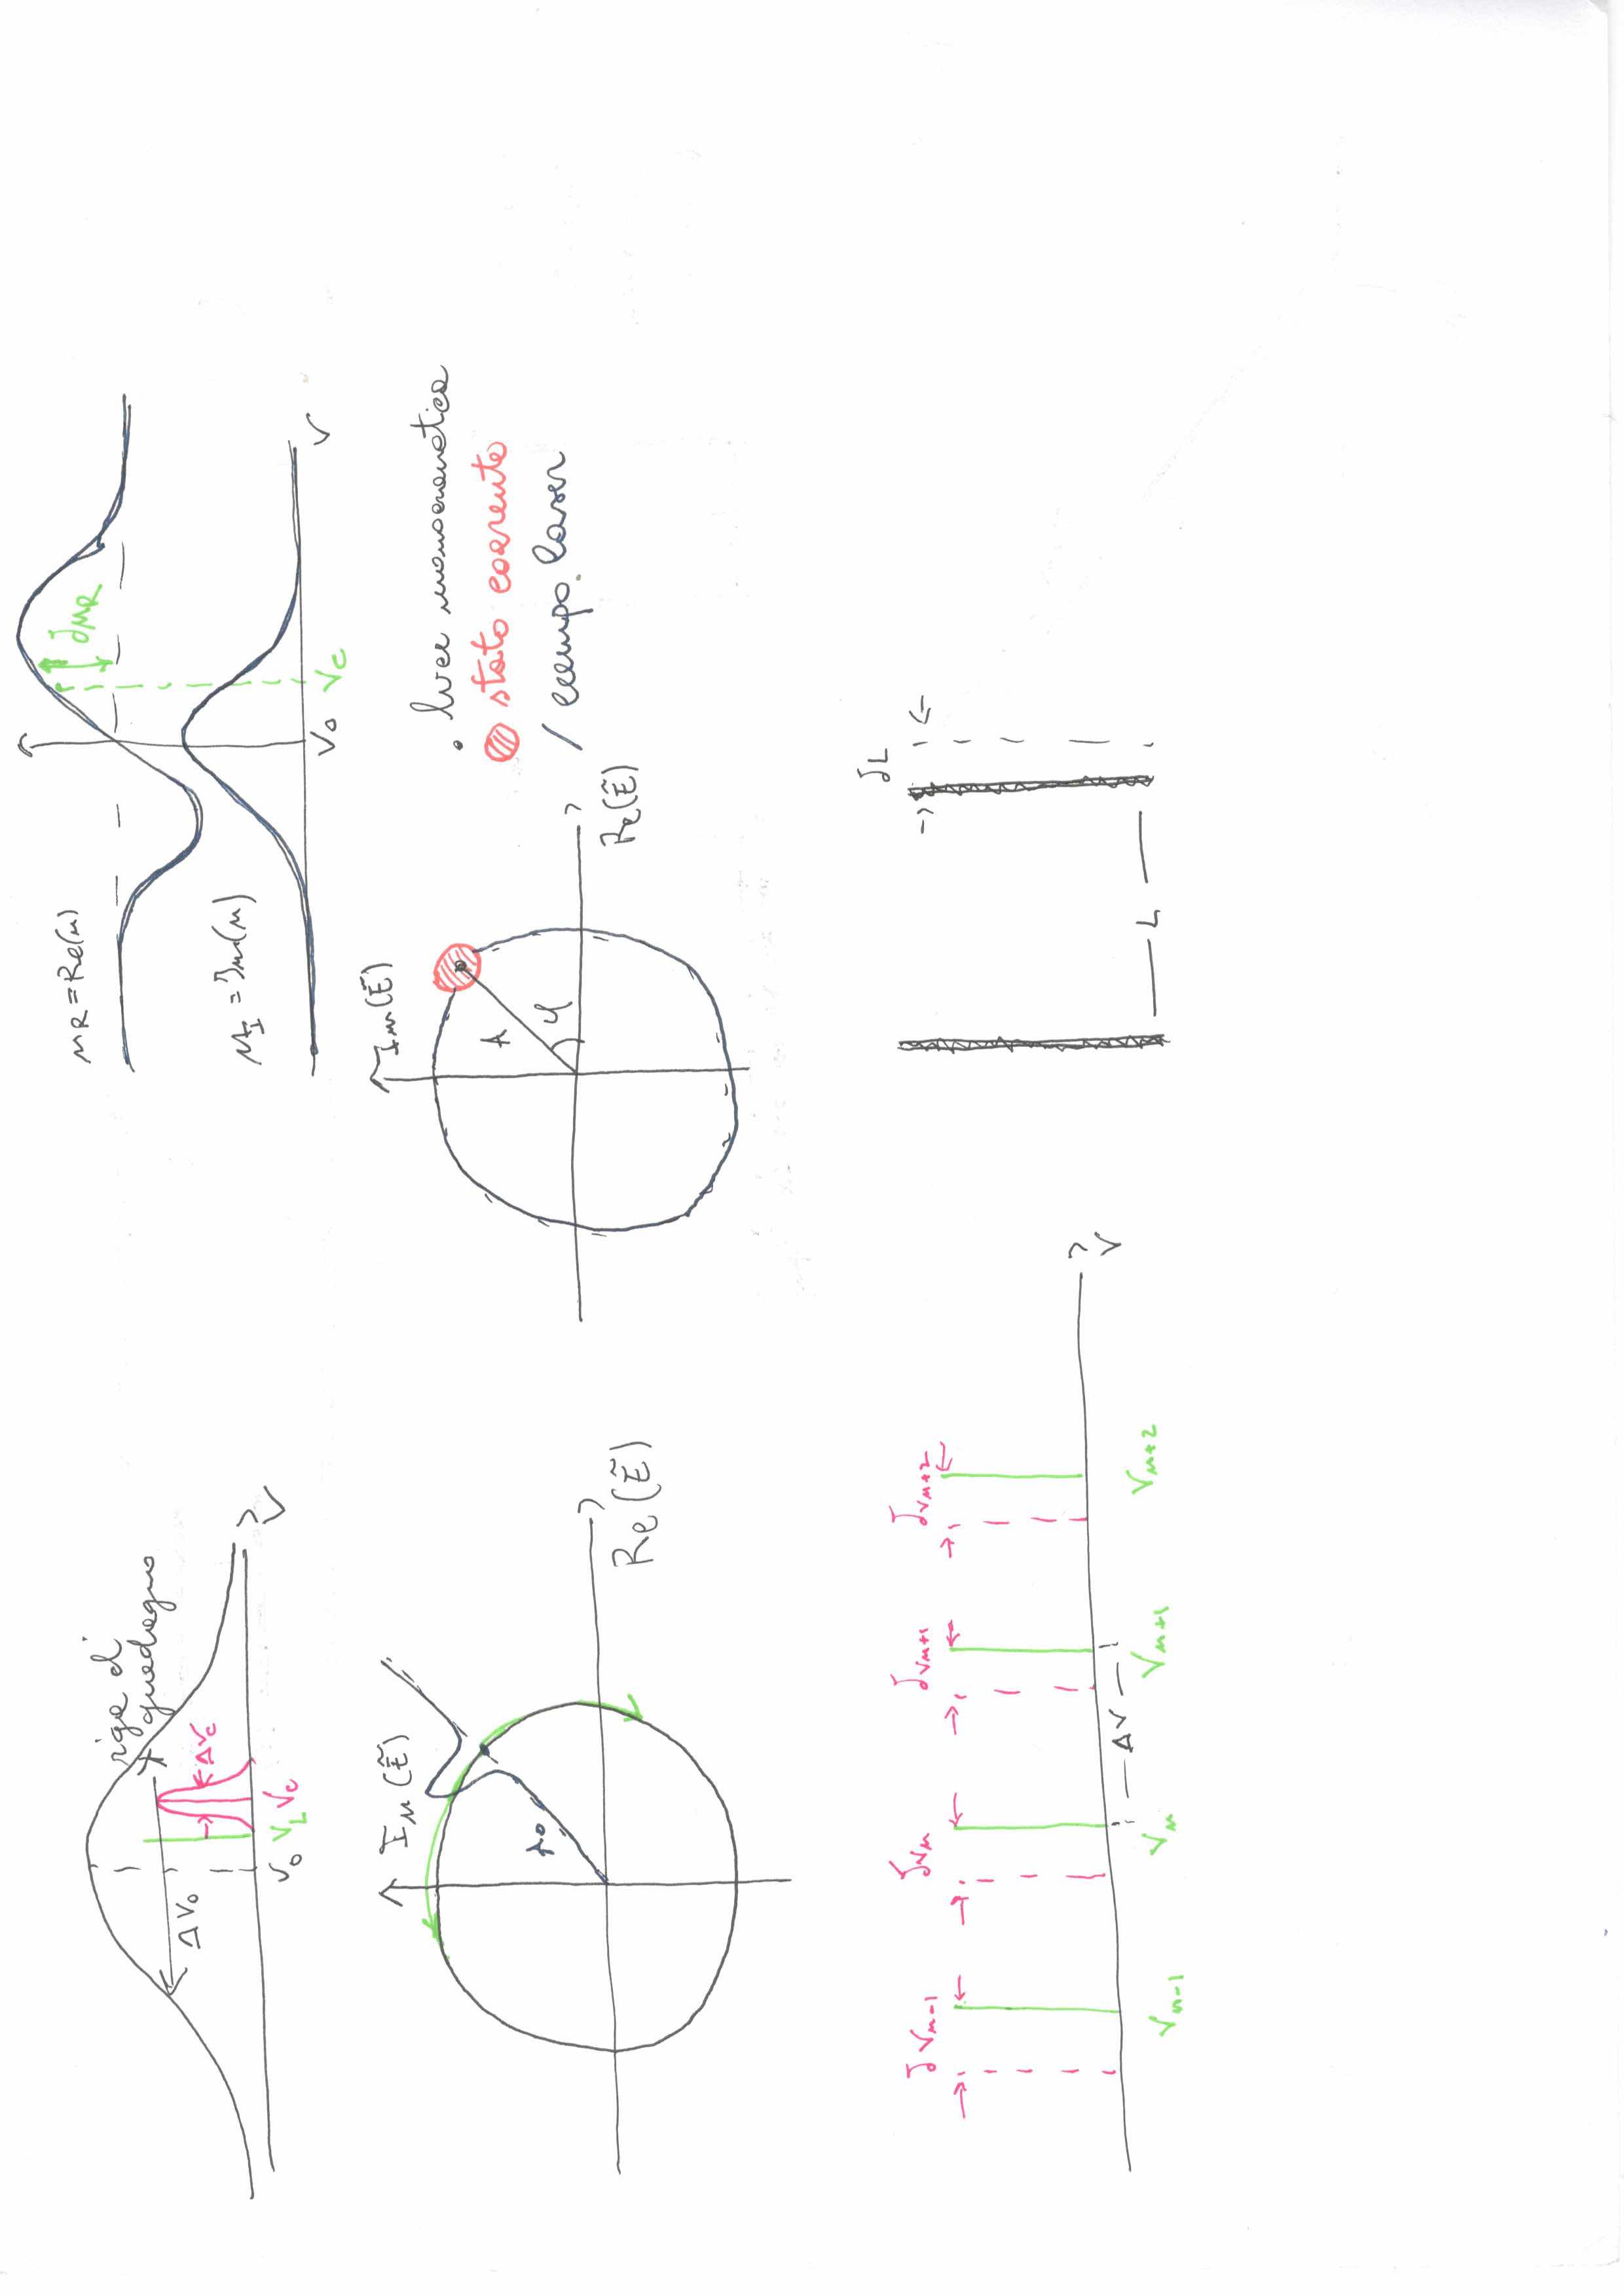 riga di
guadagno
Δν₀
Δν_c
ν₀ ν_L ν_c
ν
n_R = Re(n)
δn_R
n_I = Im(n)
ν₀ ν_c
ν
Im(Ẽ)
A₀
Re(Ẽ)
Im(Ẽ)
A
φ
Re(Ẽ)
. luce monocromatica
stato coerente
/ campo laser
δν_{n-1} δν_n δν_{n+1} δν_{n+2}
Δν
ν
ν_{n-1} ν_n ν_{n+1} ν_{n+2}
δL
L